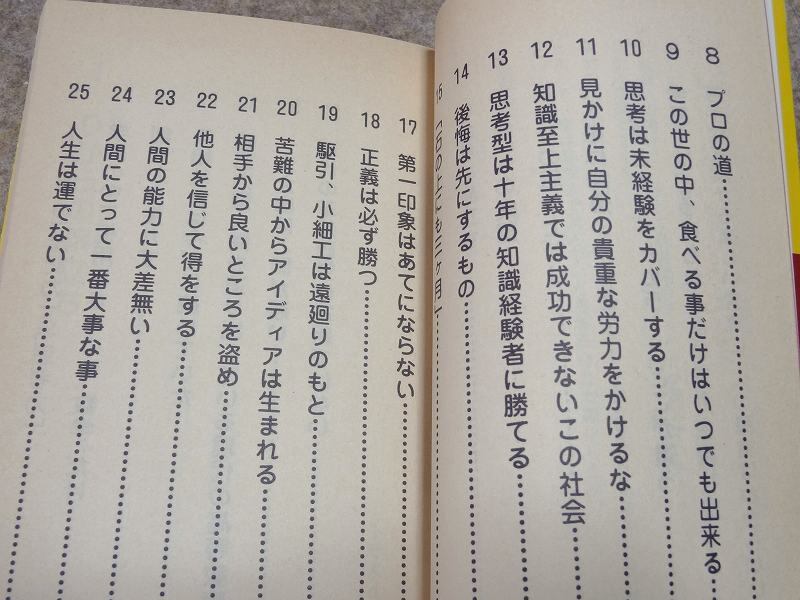 8 プロの道
9 この世の中、食べる事だけはいつでも出来る
10 思考は未経験をカバーする
11 見かけに自分の貴重な労力をかけるな
12 知識至上主義では成功できないこの社会
13 思考型は十年の知識経験者に勝てる
14 後悔は先にするもの
15 「石の上にも三ヶ月」
17 第一印象はあてにならない
18 正義は必ず勝つ
19 駆引、小細工は遠廻りのもと
20 苦難の中からアイディアは生まれる
21 相手から良いところを盗め
22 他人を信じて得をする
23 人間の能力に大差無い
24 人間にとって一番大事な事
25 人生は運でない